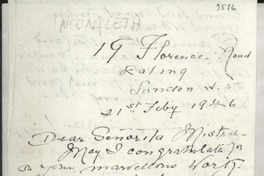 INCOMPLETA
3516
19 Florence Road
Ealing
London W.5
21st Feby 1946
Dear Señorita Mistral
May I congratulate you
on your marvellous work.